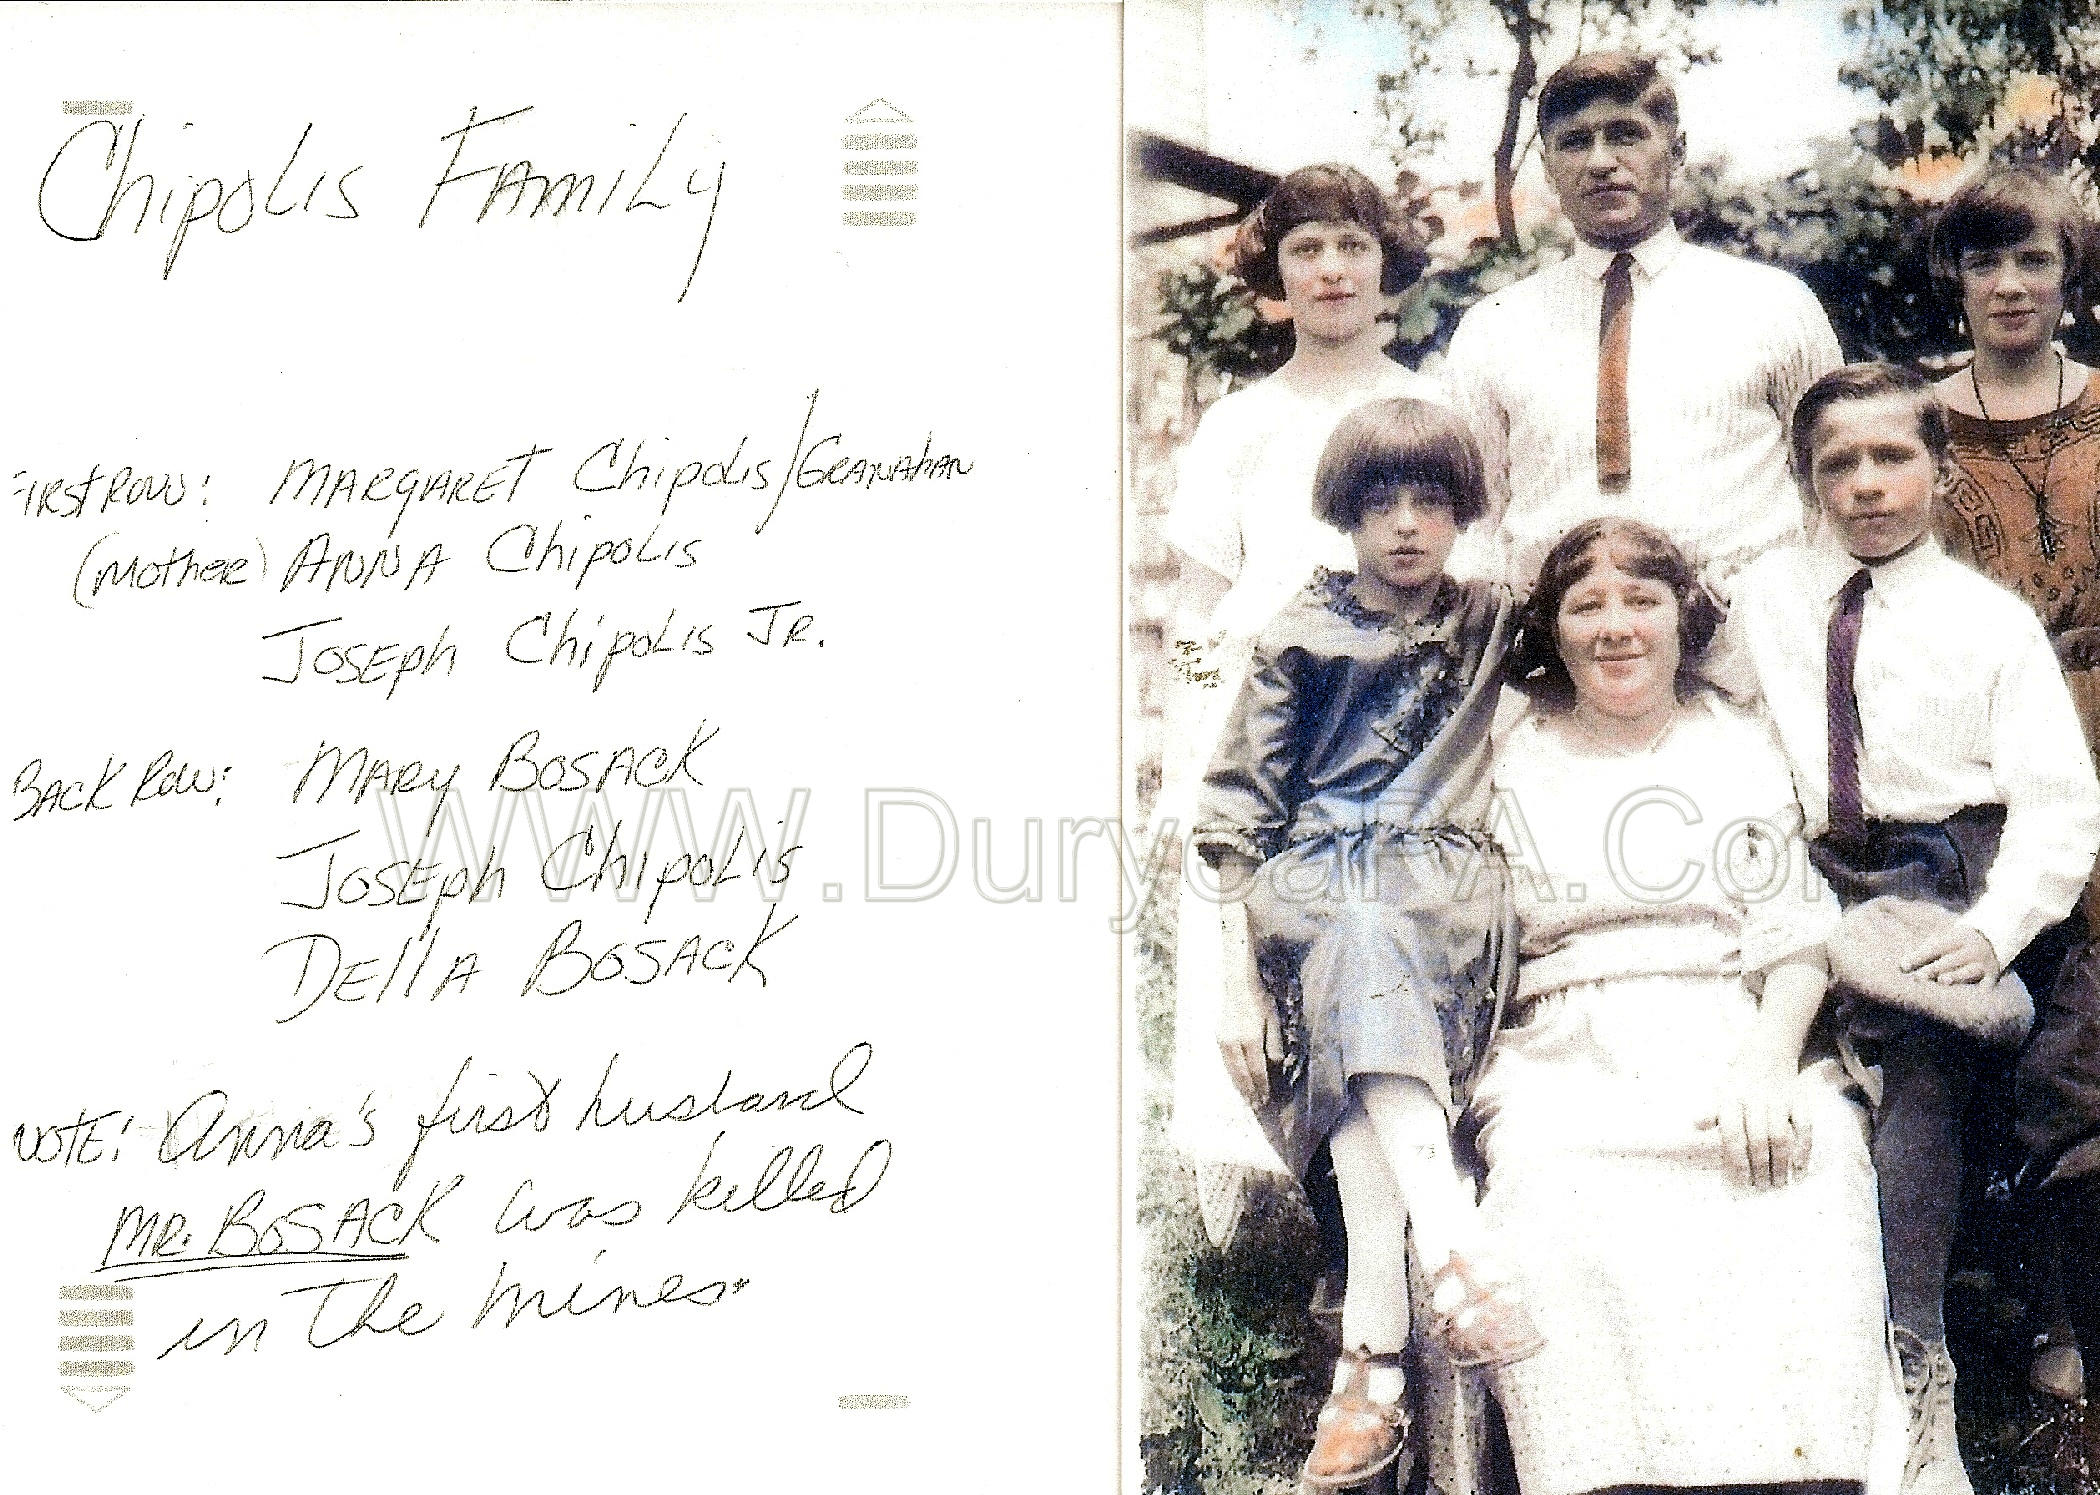 Chipolis Family
First Row: Margaret Chipolis/Granahan
(Mother) Anna Chipolis
Joseph Chipolis Jr.
Back Row: Mary Bosack
Joseph Chipolis
Della Bosack
WWW.DuryeaPA.Com
Note! Anna's first husband
Mr. Bosack was killed
in the mines.